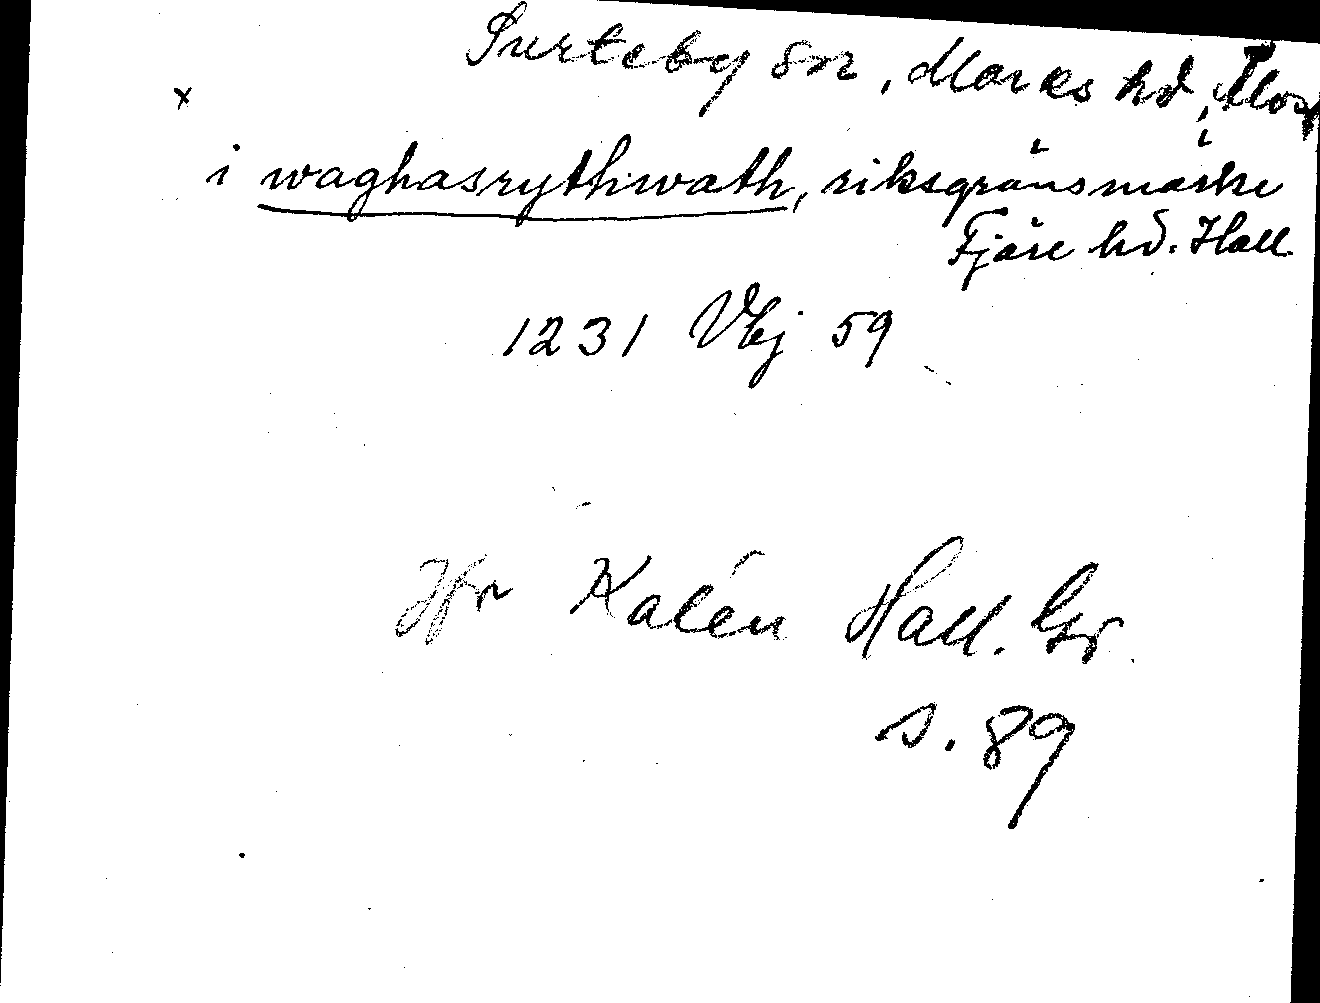 Surteby sn, Marks hd, Älvsb
x
i waghasrythwath, riksgränsmärke
Fjäre hd. Hall.
1231 Vbj 59
Jfr Kalén Hall. Gr.
s. 89